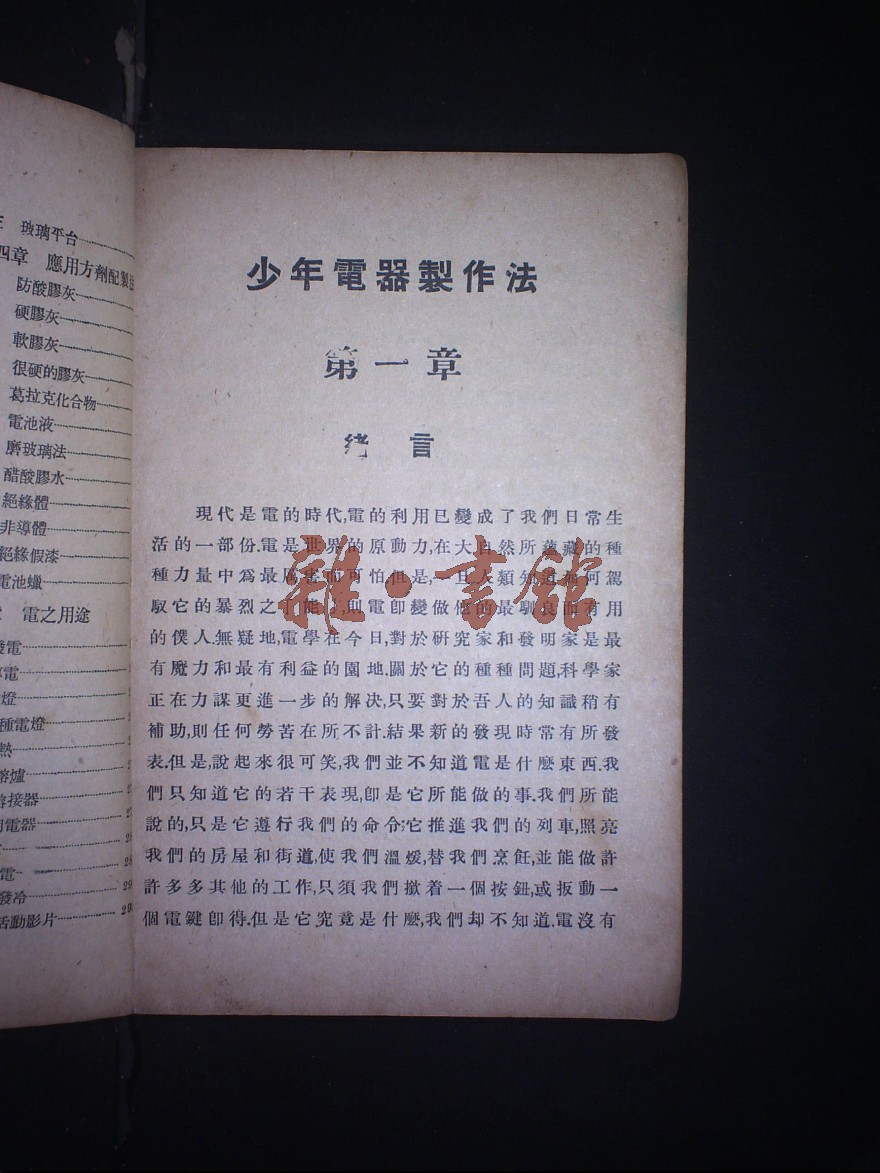 玻璃平台
四章　應用方劑配製法
防酸膠灰
硬膠灰
軟膠灰
很硬的膠灰
葛拉克化合物
電池液
磨玻璃法
醋酸膠水
絕緣體
非導體
絕緣假漆
電池蠟
電之用途
發電
電
燈
種電燈
熱
熔爐
接器
電器
電
發冷
活動影片
少年電器製作法
第一章
緒言
現代是電的時代,電的利用已變成了我們日常生
活的一部份.電是世界的原動力,在大自然所蘊藏的種
種力量中爲最厲害而可怕.但是,一旦人類知道如何駕
馭它的暴烈之性能了,則電卽變做他的最馴良而有用
的僕人.無疑地,電學在今日,對於硏究家和發明家是最
有魔力和最有利益的園地.關於它的種種問題,科學家
正在力謀更進一步的解決,只要對於吾人的知識稍有
補助,則任何勞苦在所不計.結果新的發現時常有所發
表.但是,說起來很可笑,我們並不知道電是什麼東西.我
們只知道它的若干表現,卽是它所能做的事.我們所能
說的,只是它遵行我們的命令:它推進我們的列車,照亮
我們的房屋和街道,使我們溫煖,替我們烹飪,並能做許
許多多其他的工作,只須我們撳着一個按鈕,或扳動一
個電鍵卽得.但是它究竟是什麼,我們却不知道.電沒有
雜·書館